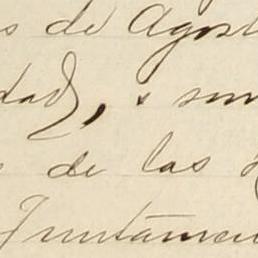 s de Agost
dad, s sun
de las
Juntamen